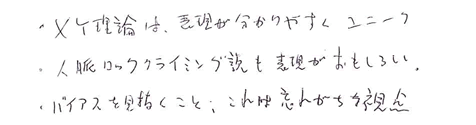 ・XY理論は、表現が分かりやすくユニーク
・人脈ロッククライミング説も表現がおもしろい。
・バイアスを見抜くこと、これは忘れがちな視点